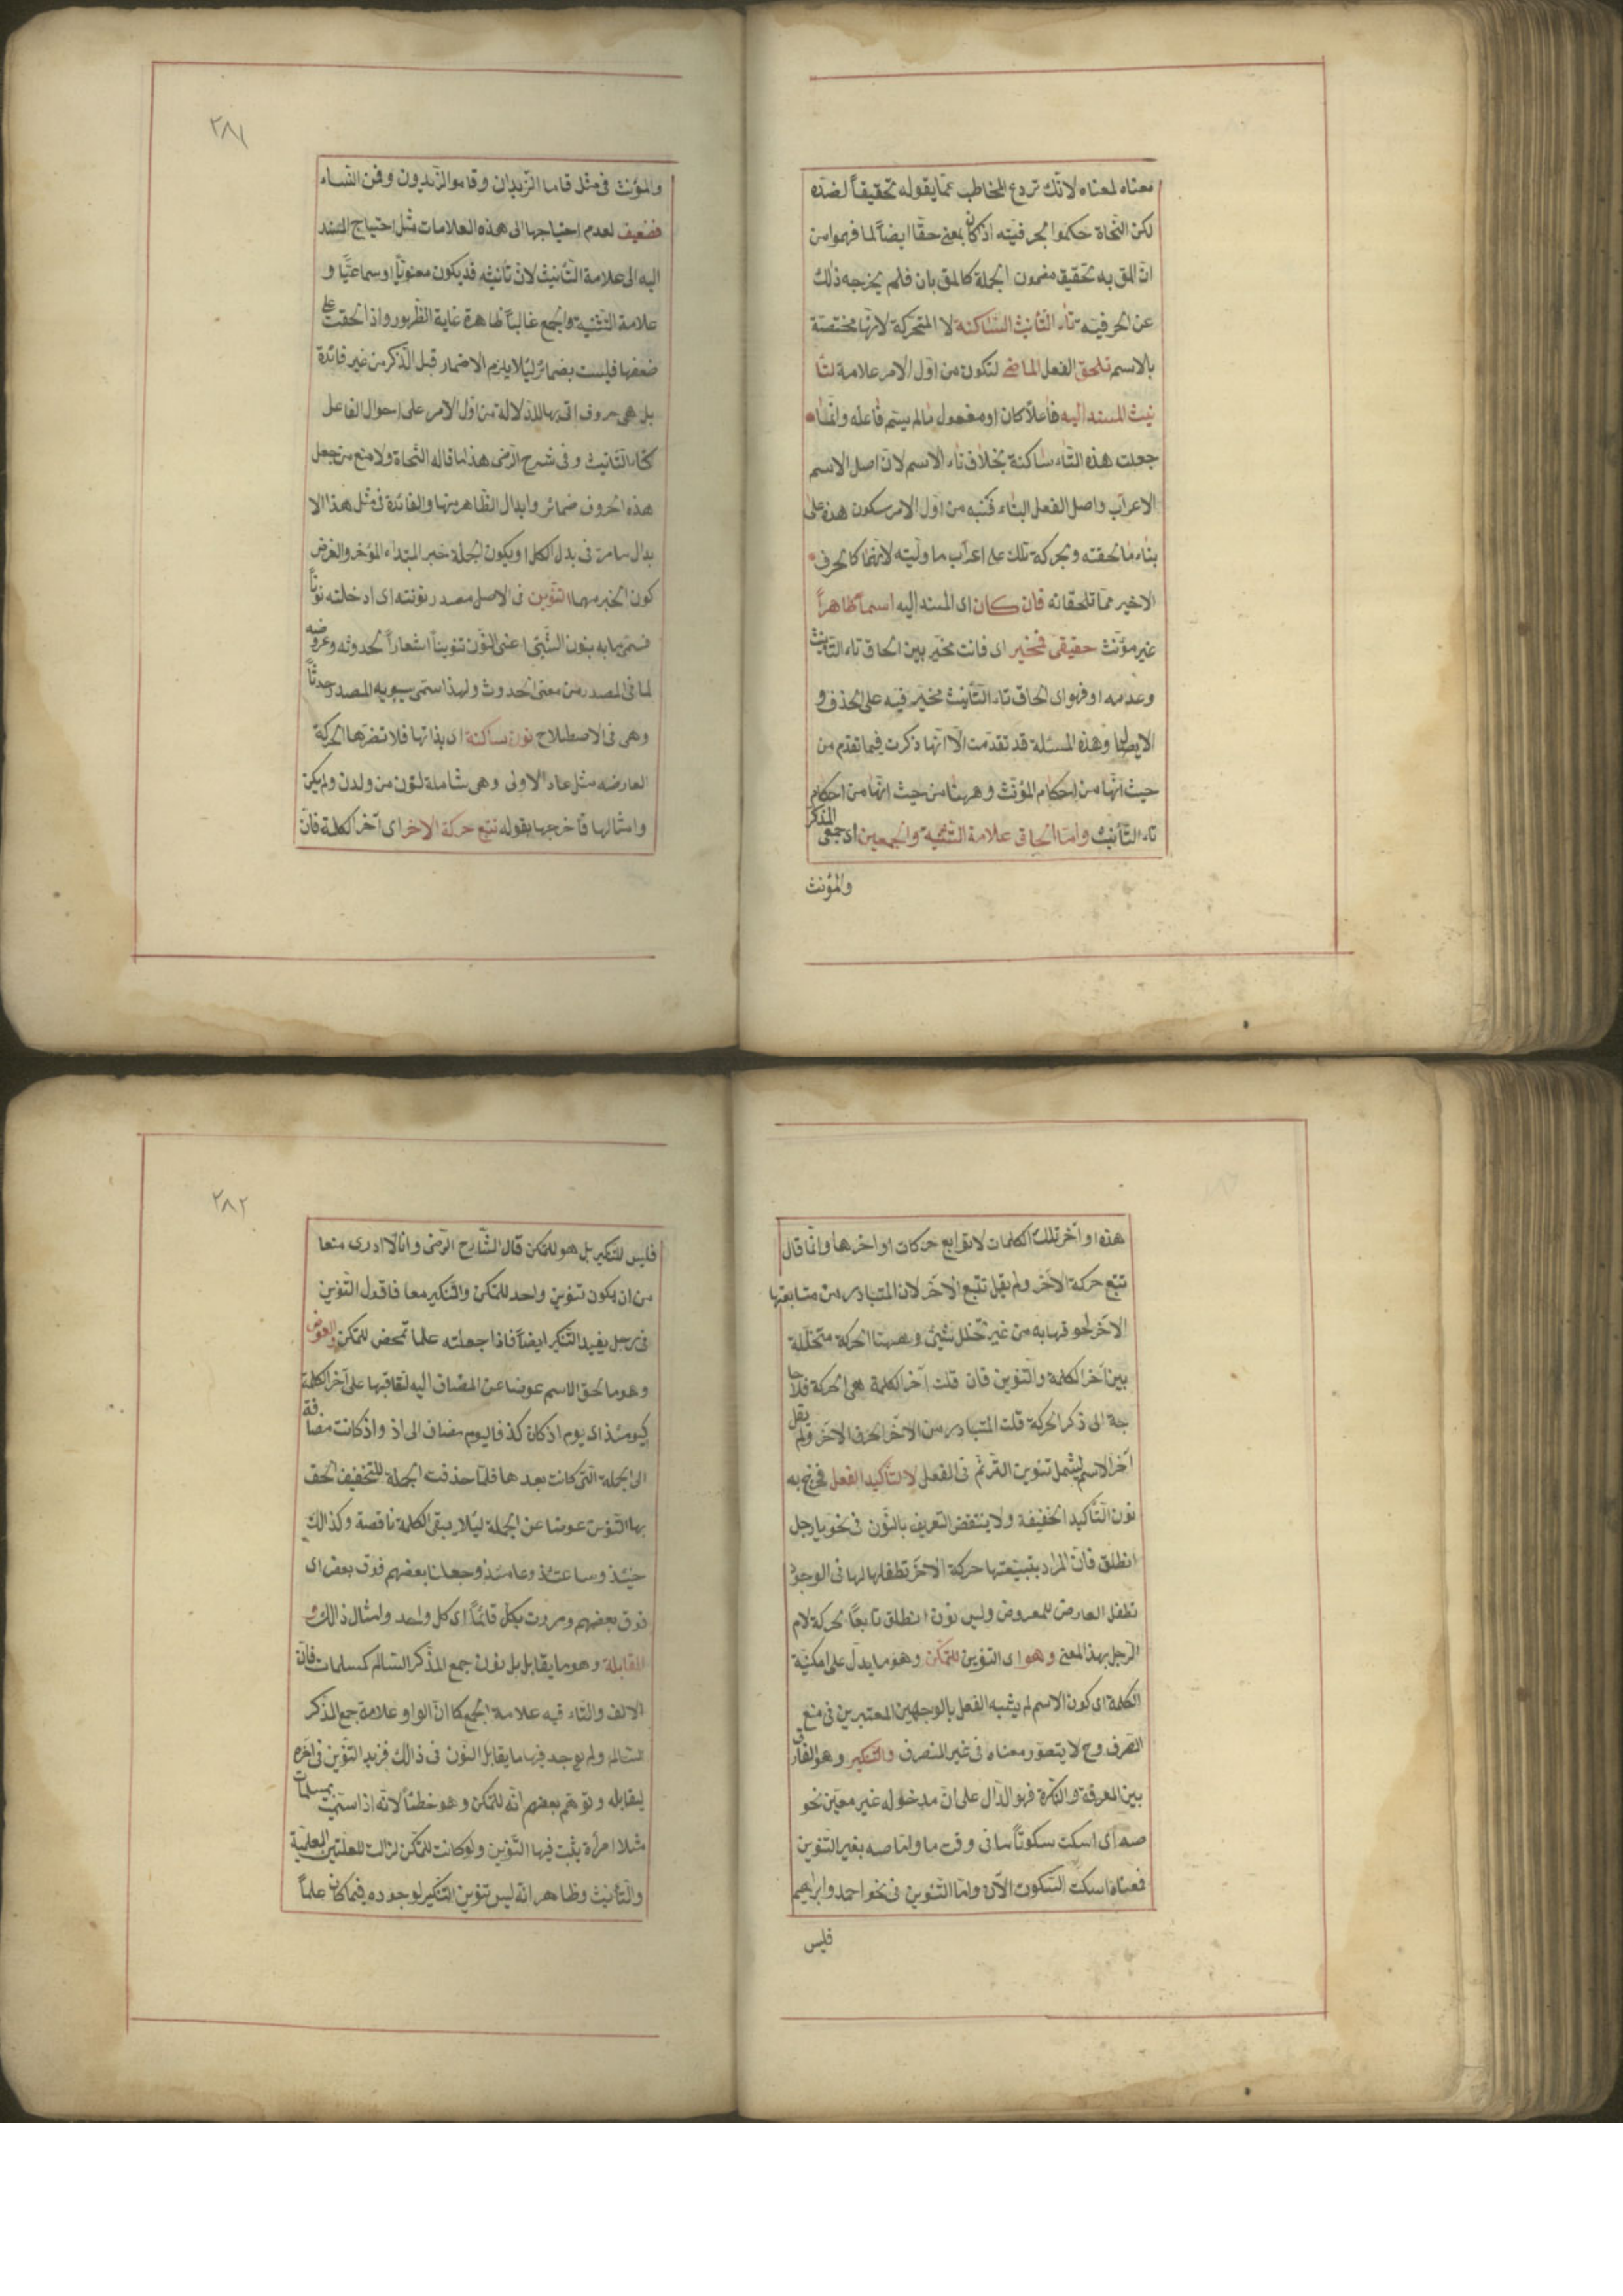 معناه لمعناه لانك تردع المخاطب عما يقوله تحقيقاً لضده
لكن النحاة حكموا بحرفيته اذ كان بمعنى حقا ايضاً لما فهموا من
ان المق به تحقيق مضمون الجملة كالمق بان فلم يخرجه ذلك
عن الحرفيه تاء التانيث الساكنة لا المتحركة لانها مختصة
بالاسم تلحق الفعل الماضى لتكون من اول الامر علامة لتا
نيث المسند اليه فاعلاً كان او مفعول مالم يسم فاعله وانما
جعلت هذه التاء ساكنة بخلاف تاء الاسم لان اصل الاسم
الاعراب واصل الفعل البناء فنبه من اول الامر بسكون هذه على
بناء ما لحقته وبحركة تلك على اعراب ما وليته لانهما كالحرف
الاخير مما تلحقانه فان كان اى المسند اليه اسماً ظاهراً
غير مؤنث حقيقى فمخير اى فانت مخير بين الحاق تاء التانيث
وعدمه او فهو اى الحاق تاء التأنيث مخير فيه على الحذف و
الايصال وهذه المسئلة قد تقدمت الا انها ذكرت فيما تقدم من
حيث انها من احكام المؤنث وههنا من حيث انها من احكام
تاء التأنيث واما الحاق علامة التثنية والجمعين اى جمعى المذكر
والمؤنث
٢٨١
والمؤنث فى مثل قاما الزيدان وقاموا الزيدون وقمن النساء
فضعيف لعدم احتياجها الى هذه العلامات مثل احتياج المسند
اليه الى علامة التأنيث لان تأنيثه قد يكون معنوياً او سماعيّا و
علامة التثنية والجمع غالباً ظاهرة غاية الظهور واذا الحقت على
ضعفها فليست بضمائر ليلا يلزم الاضمار قبل الذكر من غير فائدة
بل هى حروف اتى بها للدلالة من اول الامر على احوال الفاعل
كتاء التانيث وفى شرح الرضى هذا ما قاله النحاة ولا منع من جعل
هذه الحروف ضمائر وابدال الظاهر منها والفائدة فى مثل هذا الا
بدال ما مر فى بدل الكل او يكون الجملة خبر المبتداء المؤخر والغرض
كون الخبر مهما التنوين فى الاصل مصدر نونته اى ادخلته نوناً
فسمى ما به ينون الشئ اعنى النون تنويناً اشعاراً بحدوثه وعروضه
لما فى المصدر من معنى الحدوث ولهذا سمى سيبويه المصدر حدثاً
وهى فى الاصطلاح نون ساكنة اى بذاتها فلا تضرها الحركة
العارضه مثل عاد الاولى وهى شاملة لنون من ولدن ولم يكن
وامثالها فاخرجها بقوله تتبع حركة الاخر اى آخر الكلمة فان
هذه اواخر تلك الكلمات لا توابع حركات اواخرها وانما قال
تتبع حركة الاخر ولم يقل تتبع الاخر لان المتبادر من متابعتها
الاخر لحوقها به من غير تخلل شئ وههنا الحركة متخللة
بين آخر الكلمة والتنوين فان قلت آخر الكلمة هى الحركة فلا حا
جة الى ذكر الحركة قلت المتبادر من الاخر الحرف الاخر ولم يقل
آخر الاسم ليشمل تنوين الترنم فى الفعل لا لتأكيد الفعل فخرج به
نون التأكيد الخفيفة ولا ينتقض التعريف بالنون فى نحو يا رجل
انطلق فان المراد بتبيعتها حركة الاخر تطفلها لها فى الوجود
تطفل العارض للمعروض وليس نون انطلق تابعاً لحركة لام
الرجل بهذا المعنى وهو اى التنوين للتمكن وهو ما يدل على امكنية
الكلمة اى كون الاسم لم يشبه الفعل بالوجهين المعتبرين فى منع
الصرف وح لا يتصور معناه فى غير المنصرف والتنكير وهو الفارق
بين المعرفة والنكرة فهو الدال على ان مدخوله غير معين نحو
صه اى اسكت سكوتاً ما فى وقت ما واما صه بغير التنوين
فمعناه اسكت السكوت الآن واما التنوين فى نحو احمد وابراهيم
فليس
٢٨٢
فليس للتنكير بل هو للتمكن قال الشارح الرضى وانا لا ادرى منعا
من ان يكون تنوين واحد للتمكن والتنكير معا فاقول التنوين
فى رجل يفيد التنكير ايضاً فاذا جعلته علما تمحض للتمكن والعوض
وهو ما لحق الاسم عوضا عن المضاف اليه لتعاقبها على آخر الكلمة
كيومئذ اى يوم اذ كان كذا فاليوم مضاف الى اذ واذ كانت مضافة
الى الجملة التى كانت بعدها فلما حذفت الجملة للتخفيف الحق
بها التنوين عوضا عن الجملة ليلا يبقى الكلمة ناقصة وكذالك
حينئذ وساعتئذ وعامئذ وجعلنا بعضهم فوق بعض اى
فوق بعضهم ومررت بكل قائماً اى كل واحد وامثال ذالك و
المقابلة وهو ما يقابل بل نون جمع المذكر السالم كمسلمات فان
الالف والتاء فيه علامة الجمع كما ان الواو علامة جمع المذكر
السالم ولم يوجد فيها ما يقابل النون فى ذالك فزيد التنوين فى آخره
ليقابله وتوهم بعضهم انه للتمكن وهو خطأ لانه اذا سميت بمسلمات
مثلا امرأة يثبت فيها التنوين ولو كانت للتمكن لزالت للعلتين العلمية
والتأنيث وظاهر انه ليس تنوين التنكير لوجوده فيما كان علماً